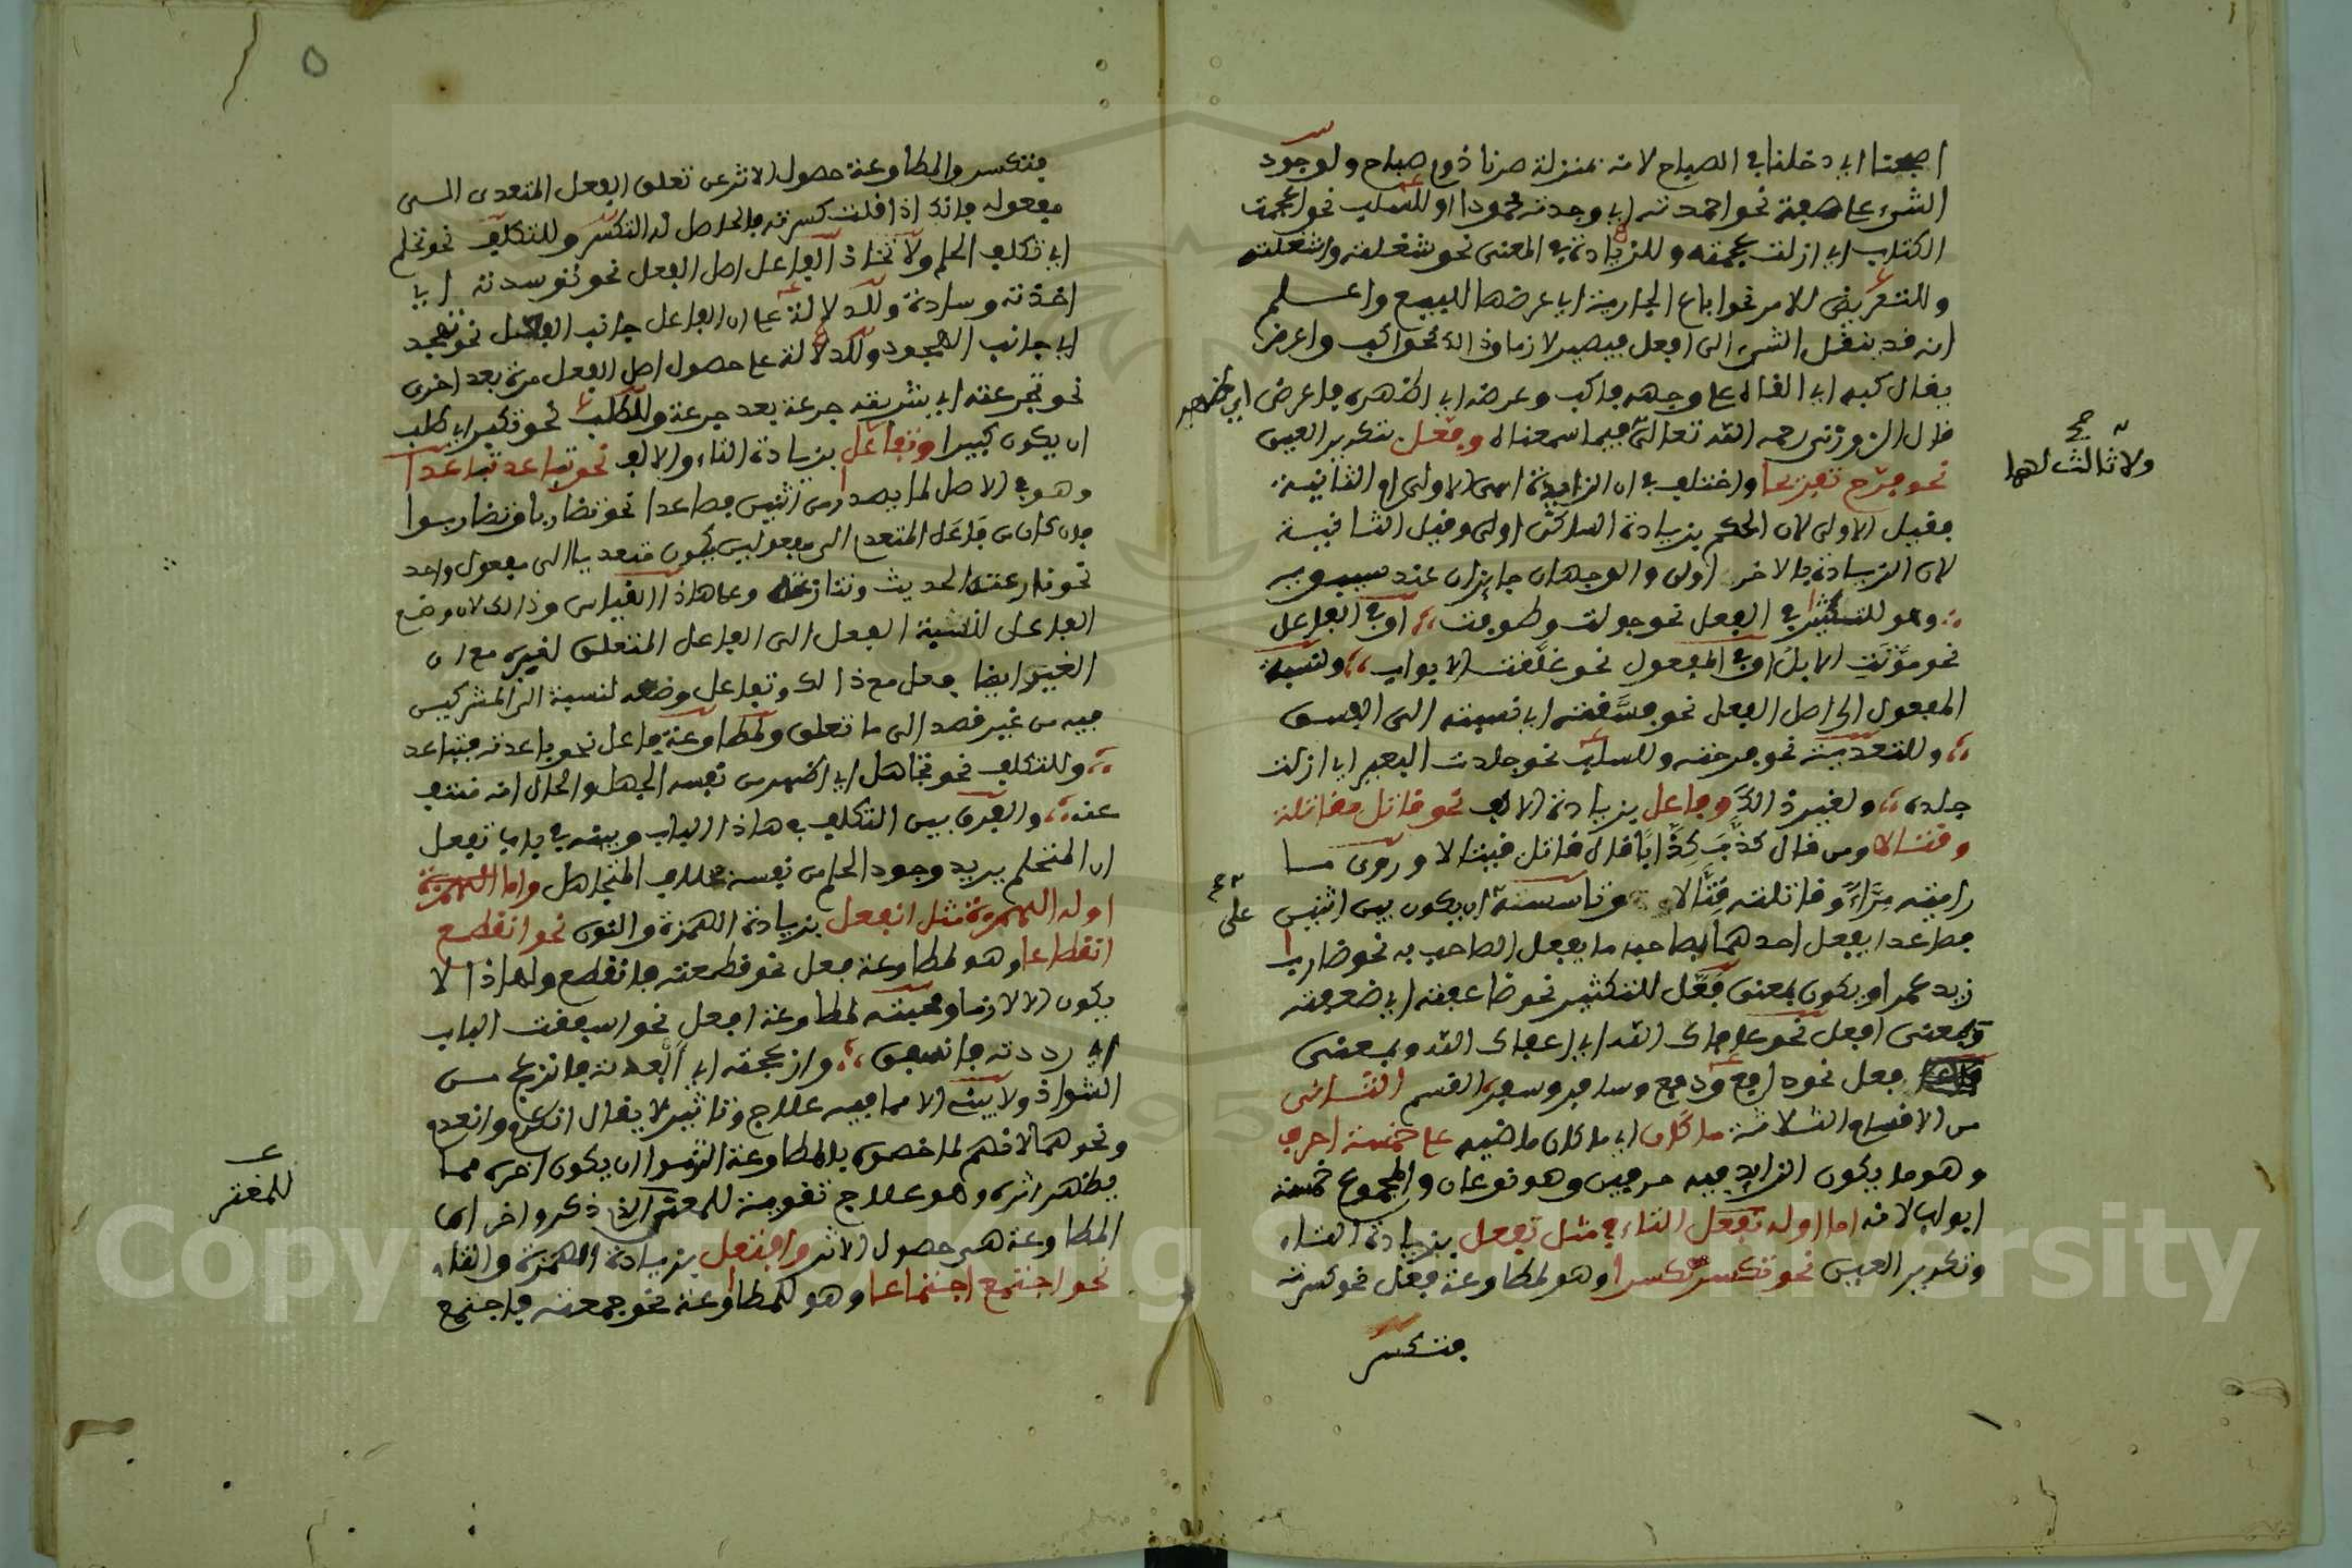 اصبحنا اي دخلنا في الصباح لانه بمنزلة صرنا ذوي صباح ولوجود
الشيء على صفة نحو احمدته اي وجدته محمودا او للسلب نحو اعجمت
الكتاب اي ازلت عجمته وللزيادة في المعنى نحو شغلته واشغلته
وللتعريض للامر نحو اباع الجارية اي عرضها للبيع واعلم
انه قد ينقل الشيء الى افعل فيصير لازما وذالك نحو اكب واعرض
يقال كبه اي القاه على وجهه فاكب وعرضه اي اظهره فاعرض اي ظهر
قال الزوزني رحمه الله تعالى فيما سمعناه وفعل بتكرير العين
ولا ثالث لهما
نحو فرح تفريحا واختلف في ان الزايدة هي الاولى او الثانية
فقيل الاولى لان الحكم بزيادة الساكن اولى وقيل الثانية
لان الزيادة بالاخر اولى والوجهان جايزان عند سيبويه
وهو للتكثير في الفعل نحو جولت وطوفت او في الفاعل
نحو موتت الابل او في المفعول نحو غلقت الابواب ولنسبة
المفعول الى اصل الفعل نحو فسقته اي نسبته الى الفسق
وللتعدية نحو فرحته وللسلب نحو جلدت البعير اي ازلت
جلده ولغير ذالك وفاعل بزيادة الالف نحو قاتل مقاتلة
وقتالا ومن قال كذب كذابا قال قاتل قيتالا وروى ما
راميته مراء وقاتلته قتالا وتاسسته ان يكون بين اثنين
على
فصاعدا يفعل احدهما بصاحبه ما يفعل الصاحب به نحو ضارب
زيد عمرا ويكون بمعنى فعل للتكثير نحو ضاعفته اي ضعفته
وبمعنى افعل نحو عافاك الله اي اعفاك الله وبمعنى
فعل نحو دافع ودفع وسافر وسفر القسم الثاني
من الاقسام الثلاثة ما كان اي ما كان ماضيه على خمسة احرف
وهو ما يكون الزايد فيه حرفين وهو نوعان والمجموع خمسة
ابواب لانه اما اوله تفعل التاء مثل تفعل بزيادة التاء
وتكرير العين نحو تكسر تكسرا وهو لمطاوعة فعل نحو كسرته
فتكسر
فتكسر والمطاوعة حصول الاثر عن تعلق الفعل المتعدي الى
مفعوله فانك اذا قلت كسرته فالحاصل له التكسر وللتكلف نحو تحلم
اي تكلف الحلم ولاتخاذ الفاعل اصل الفعل نحو توسدته اي
اخذته وسادة وللدلالة على ان الفاعل جانب الفعل نحو تهجد
اي جانب الهجود وللدلالة على حصول اصل الفعل مرة بعد اخرى
نحو تجرعته اي شربته جرعة بعد جرعة وللطلب نحو تكبر اي طلب
ان يكون كبيرا وتفاعل بزيادة التاء والالف نحو تباعد تباعدا
وهو في الاصل لما يصدر من اثنين فصاعدا نحو تضاربا وتضاربوا
فان كان من فاعل المتعدي الى مفعولين يكون متعديا الى مفعول واحد
نحو نازعته الحديث وتنازعنا وعلى هاذا القياس وذالك لان وضع
الفاعل لنسبة الفعل الى الفاعل المتعلق لغيره مع ان
الغير ايضا فعل مع ذالك وتفاعل وضعه لنسبة الى المشركين
فيه من غير قصد الى ما تعلق ولمطاوعة فاعل نحو باعدته فتباعد
وللتكلف نحو تجاهل اي اظهر من نفسه الجهل والحال انه منتف
عنه والفرق بين التكلف في هاذا الباب وبينه في باب تفعل
ان المتحلم يريد وجود الحلم من نفسه بخلاف المتجاهل واما الهمزة
اوله الهمزة مثل انفعل بزيادة الهمزة والنون نحو انقطع
انقطاعا وهو لمطاوعة فعل نحو قطعته فانقطع ولهاذا لا
يكون الا لازما ومجيئه لمطاوعة افعل نحو اسفقت الباب
اي رددته فانسفق وازعجته اي ابعدته فانزعج من
الشواذ ولا يبنى الا مما فيه علاج وتاثير لا يقال انكرم وانعدم
ونحوهما لانهم لما خصوه بالمطاوعة التزموا ان يكون اخره مما
يظهر اثره وهو علاج تقوية للمعنى الذي ذكروا اخر ان
للمعنى
المطاوعة هي حصول الاثر وافتعل بزيادة الهمزة والتاء
نحو اجتمع اجتماعا وهو للمطاوعة نحو جمعته فاجتمع